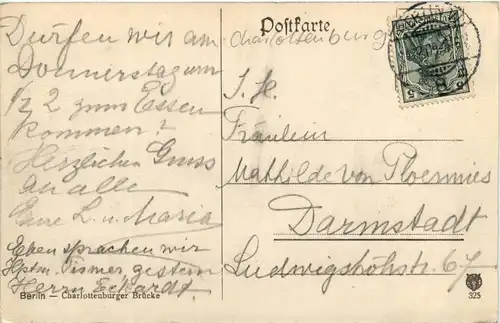 Postkarte
Charlottenburg
Dürfen wir am
Donnerstag um
1/2 2 zum Essen
kommen?
Herzlichen Gruss
an alle
Eure L. u. Maria
Eben sprachen wir
Hptm. Fismer gestern
Herrn Eckardt.
I. H.
Fräulein
Mathilde von Ploennies
Darmstadt
Ludwigshöhstr. 67
Berlin – Charlottenburger Brücke
325
5 5